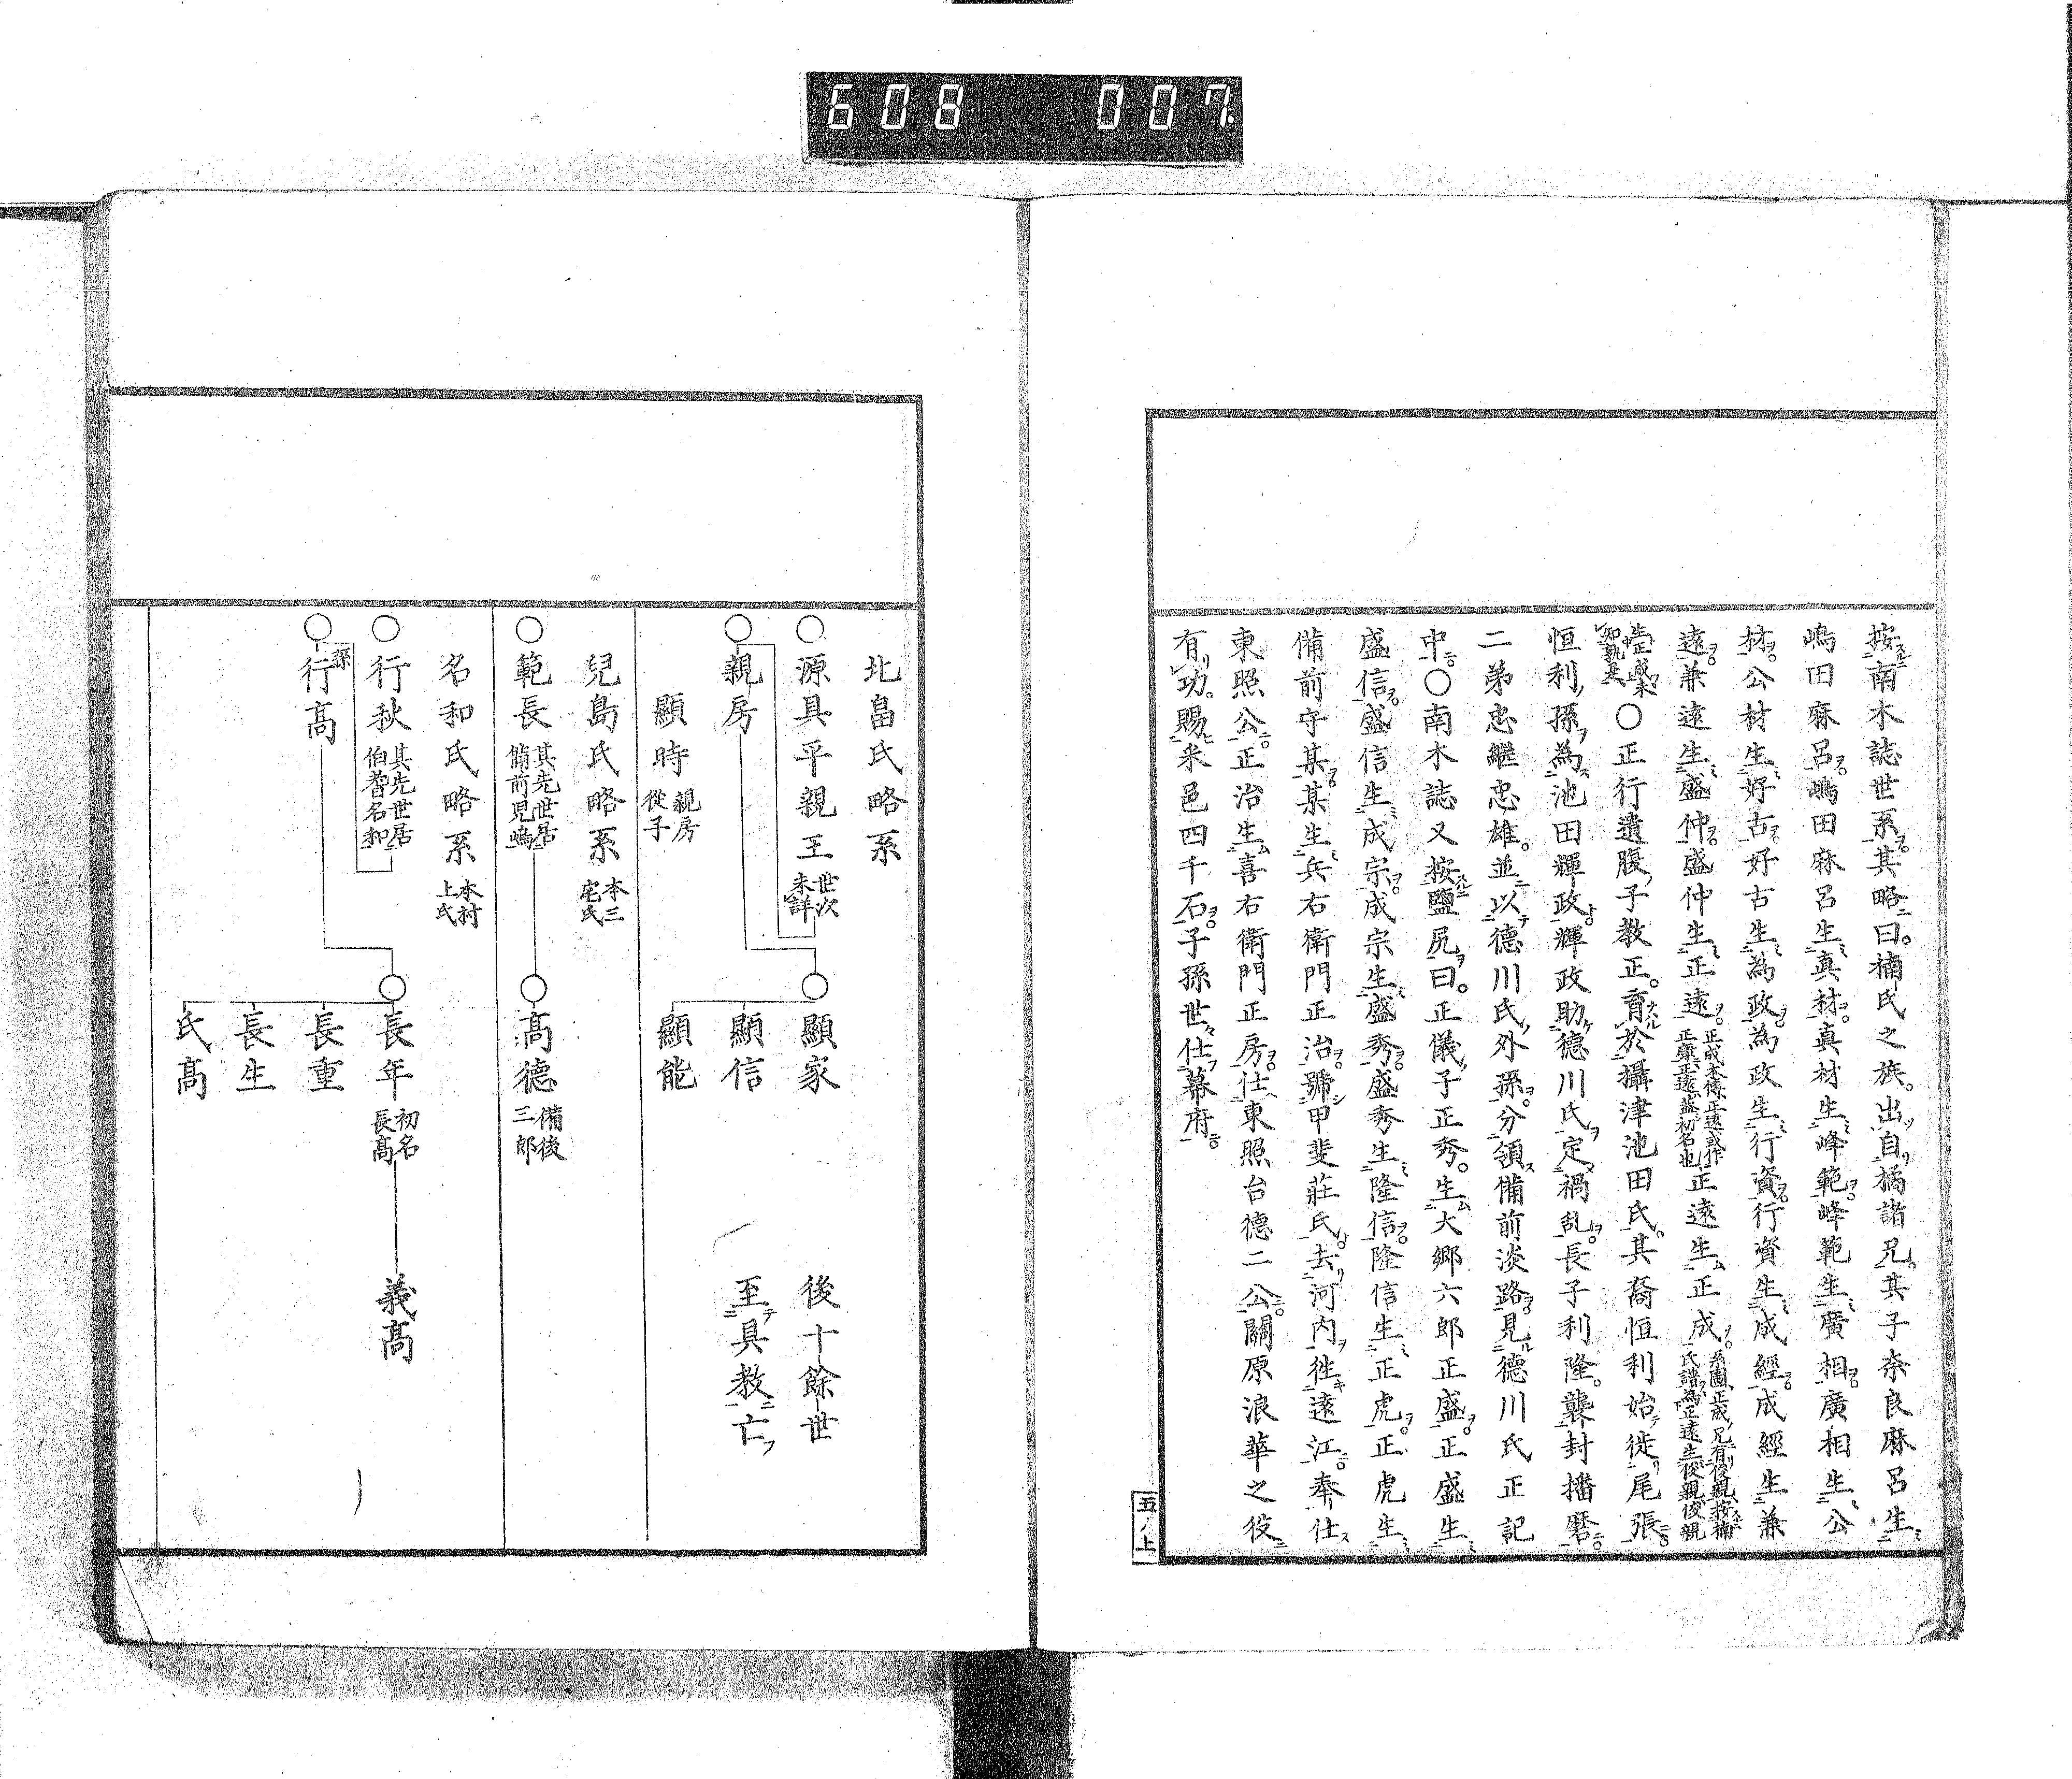 608 007.
按南木誌世系其略曰。楠氏之族。出自橘諸兄。其子奈良麻呂生
嶋田麻呂。嶋田麻呂生真材。真材生峰範。峰範生廣相。廣相生公
材。公材生好古。好古生為政。為政生行資。行資生成經。成經生兼
遠。兼遠生盛仲。盛仲生正遠。正成本傳正遠或作正康正遠蓋初名也正遠生正成。系圖正成兄有俊親按楠氏譜為正遠生俊親俊親
生正成未知孰是〇正行遺腹子教正。育於攝津池田氏。其裔恒利始徙尾張。
恒利孫為池田輝政。輝政助德川氏定禍乱。長子利隆。襲封播磨。
二弟忠繼忠雄。並以德川氏外孫。分領備前淡路。見德川氏正記
中。〇南木誌又按鹽尻曰。正儀子正秀。生大郷六郎正盛。正盛生
盛信。盛信生成宗。成宗生盛秀。盛秀生隆信。隆信生正虎。正虎生
備前守某。某生兵右衛門正治。號甲斐莊氏。去河内。徃遠江。奉仕
東照公。正治生喜右衛門正房。仕東照台德二公。關原浪華之役
有功。賜采邑四千石。子孫世々仕幕府。
五ノ上
北畠氏略系
〇源具平親王 世次未詳
〇親房
顯時 親房從子
〇顯家
顯信
顯能
後十餘世
至具教亡
兒島氏略系 本三宅氏
〇範長 其先世居備前兒嶋
〇高德 備後三郎
名和氏略系 本村上氏
〇行秋 其先世居伯耆名和
〇孫行高
〇長年 初名長高
長重
長生
氏高
義高